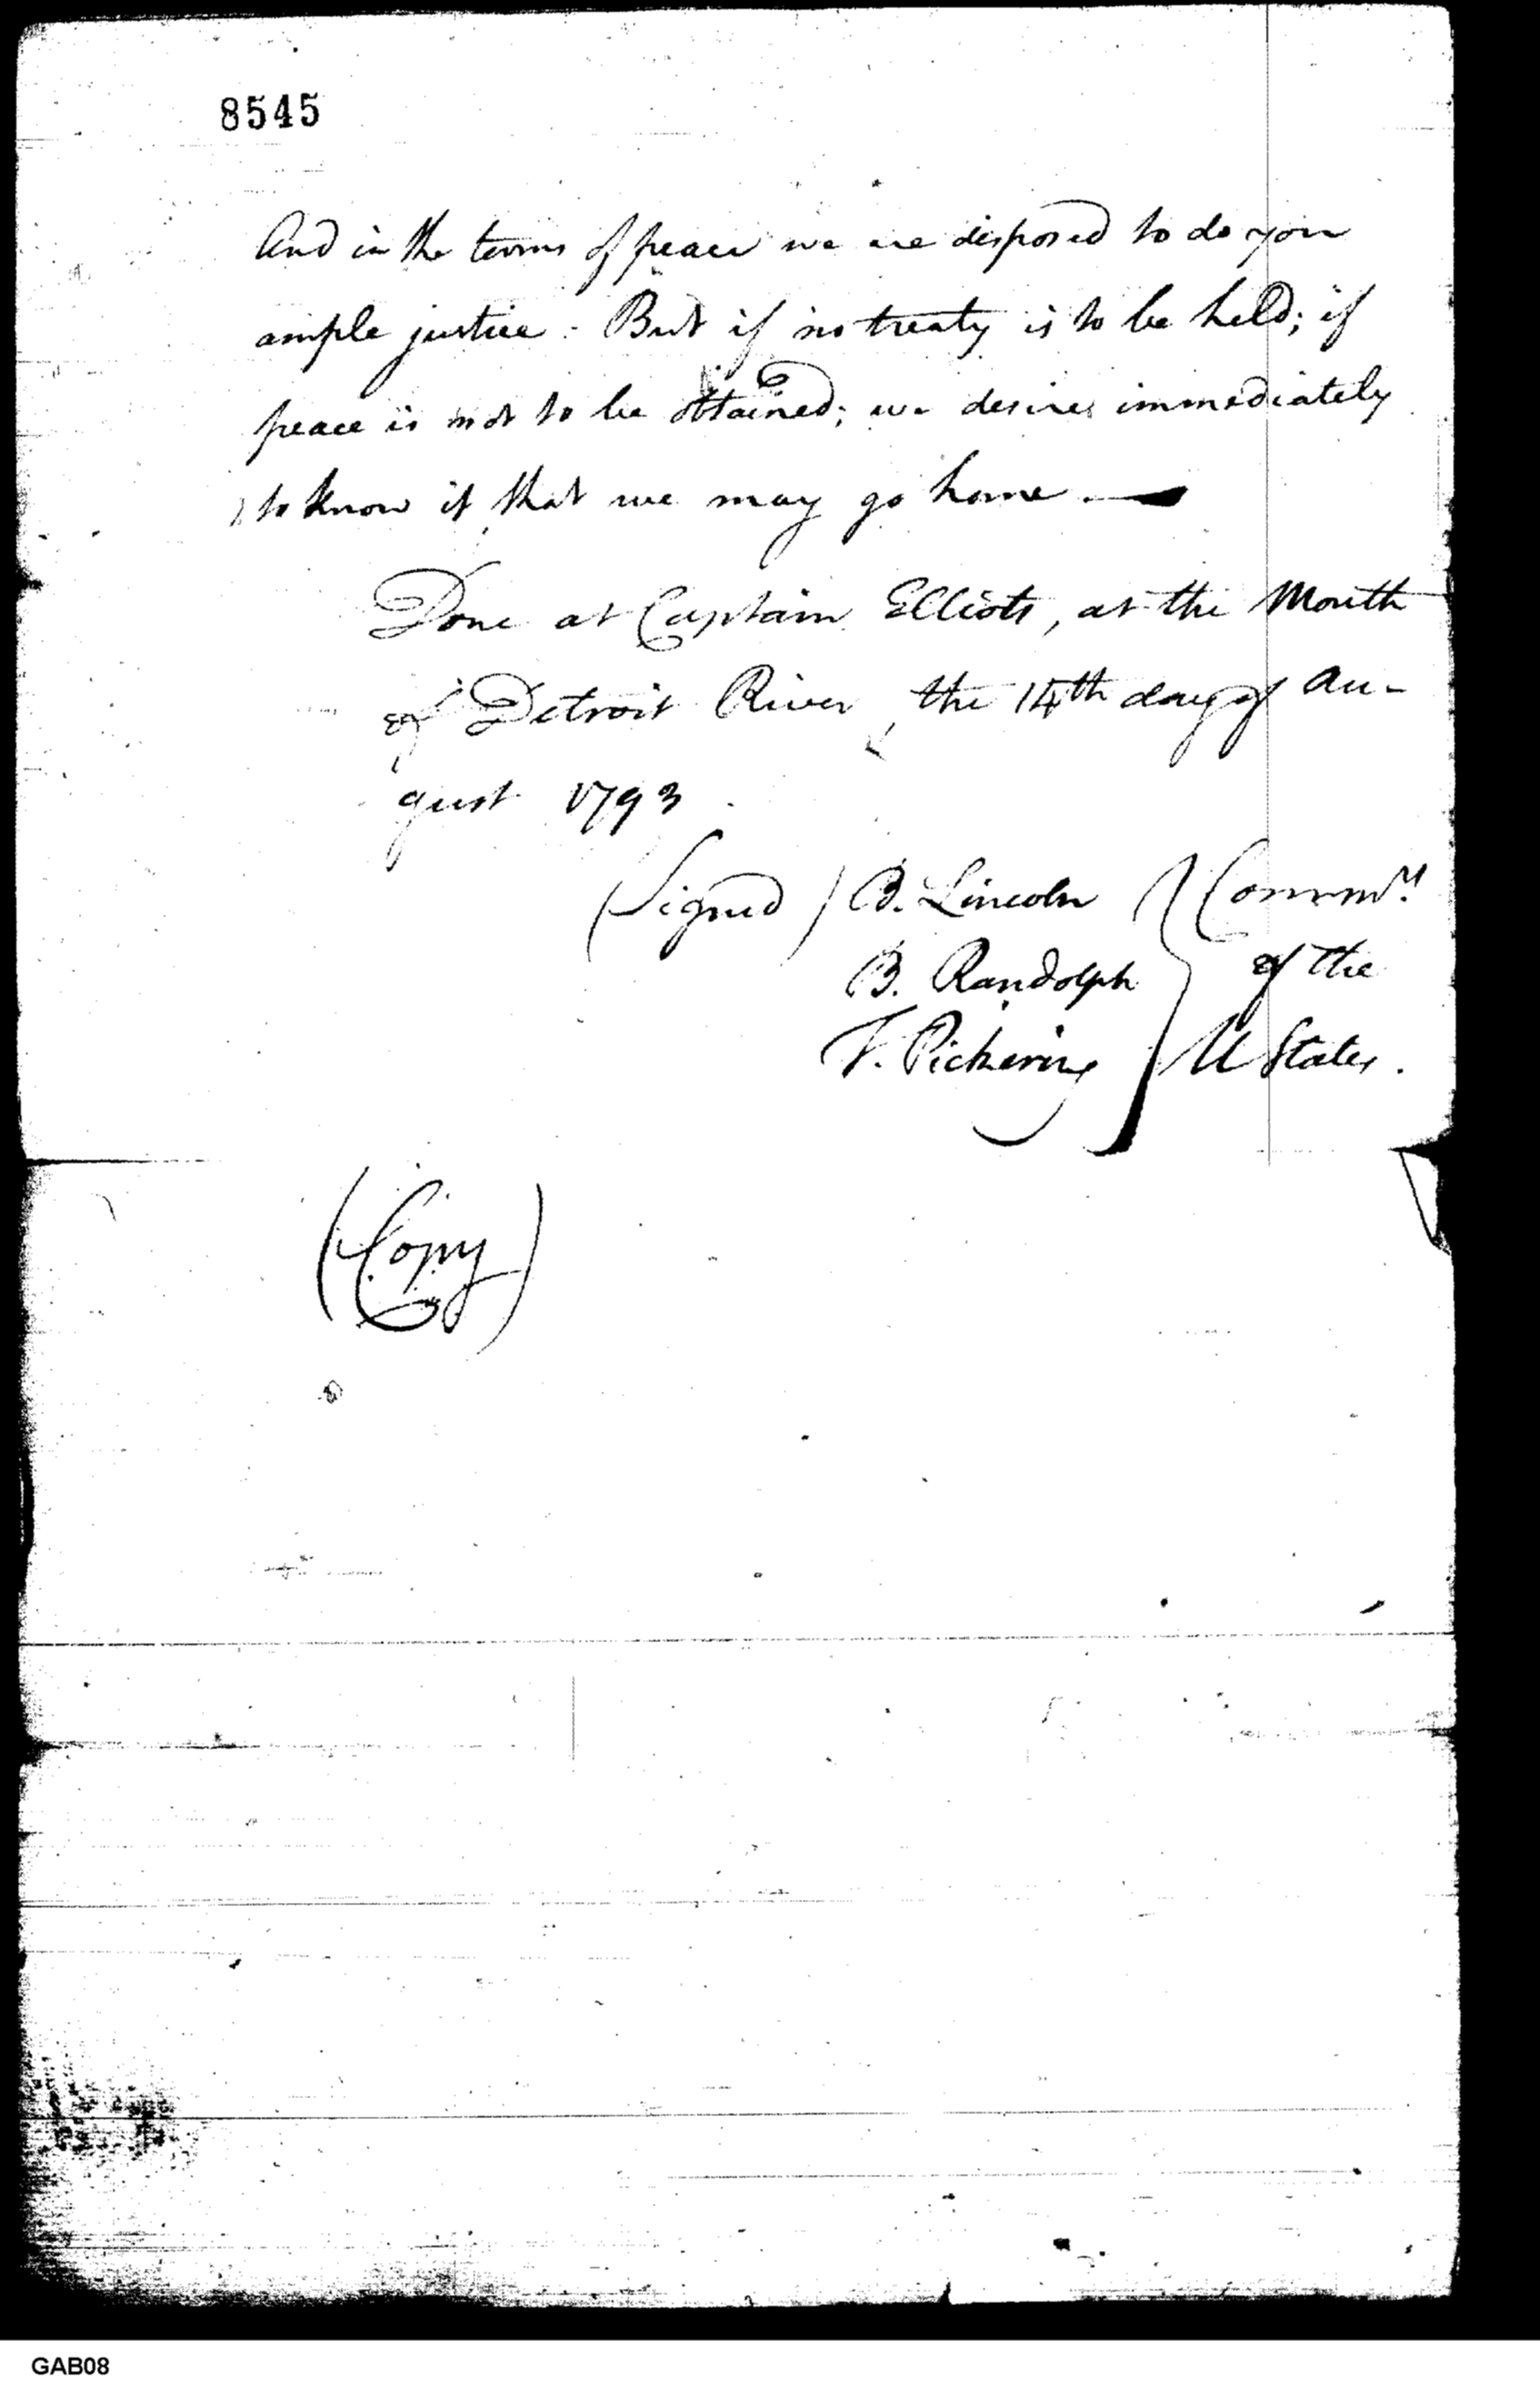 8545
And in the terms of peace we are disposed to do you
ample justice. But if no treaty is to be held; if
peace is not to be obtained; we desire immediately
to know it that we may go home.—
Done at Captain Elliots, at the Mouth
of Detroit River, the 14th day of Au-
gust 1793.
(Signed) B. Lincoln } Commrs.
B. Randolph } of the
T. Pickering } U States.
(Copy)
GAB08